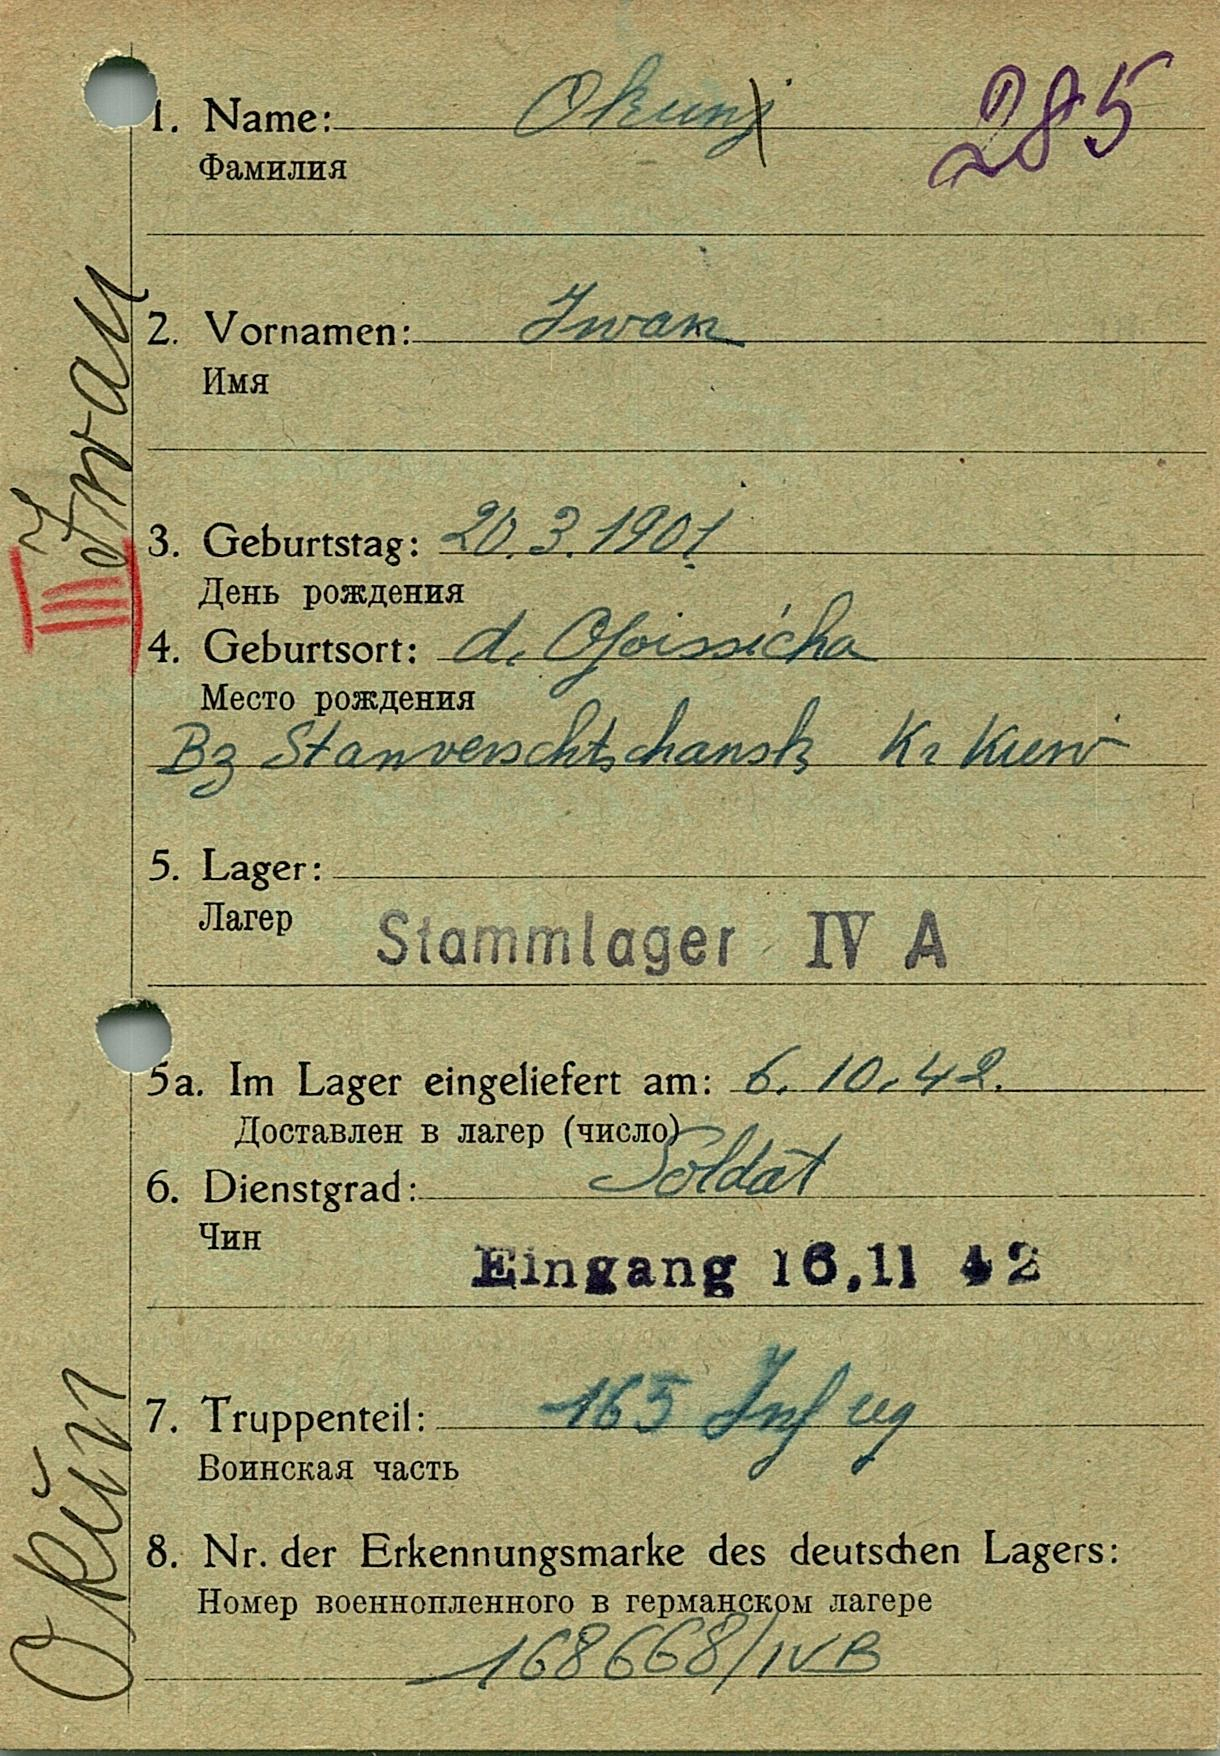 285
1. Name: Okunj
Фамилия
2. Vornamen: Iwan
Имя
3. Geburtstag: 20.3.1901
День рождения
4. Geburtsort: d.
Место рождения
Bz Kr Kiew
5. Lager:
Лагер
Stammlager IV A
5a. Im Lager eingeliefert am: 6.10.42.
Доставлен в лагер (число)
6. Dienstgrad: Soldat
Чин
Eingang 16.11 42
7. Truppenteil: 165 Inf
Воинская часть
8. Nr. der Erkennungsmarke des deutschen Lagers:
Номер военнопленного в германском лагере
168668/IVB
Okŭn Iwan
III